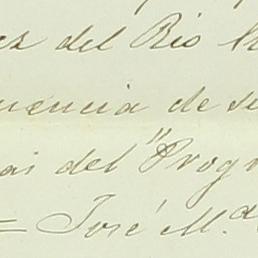 ez del Rio
uencia de se
as del "Progr
= José M.ª